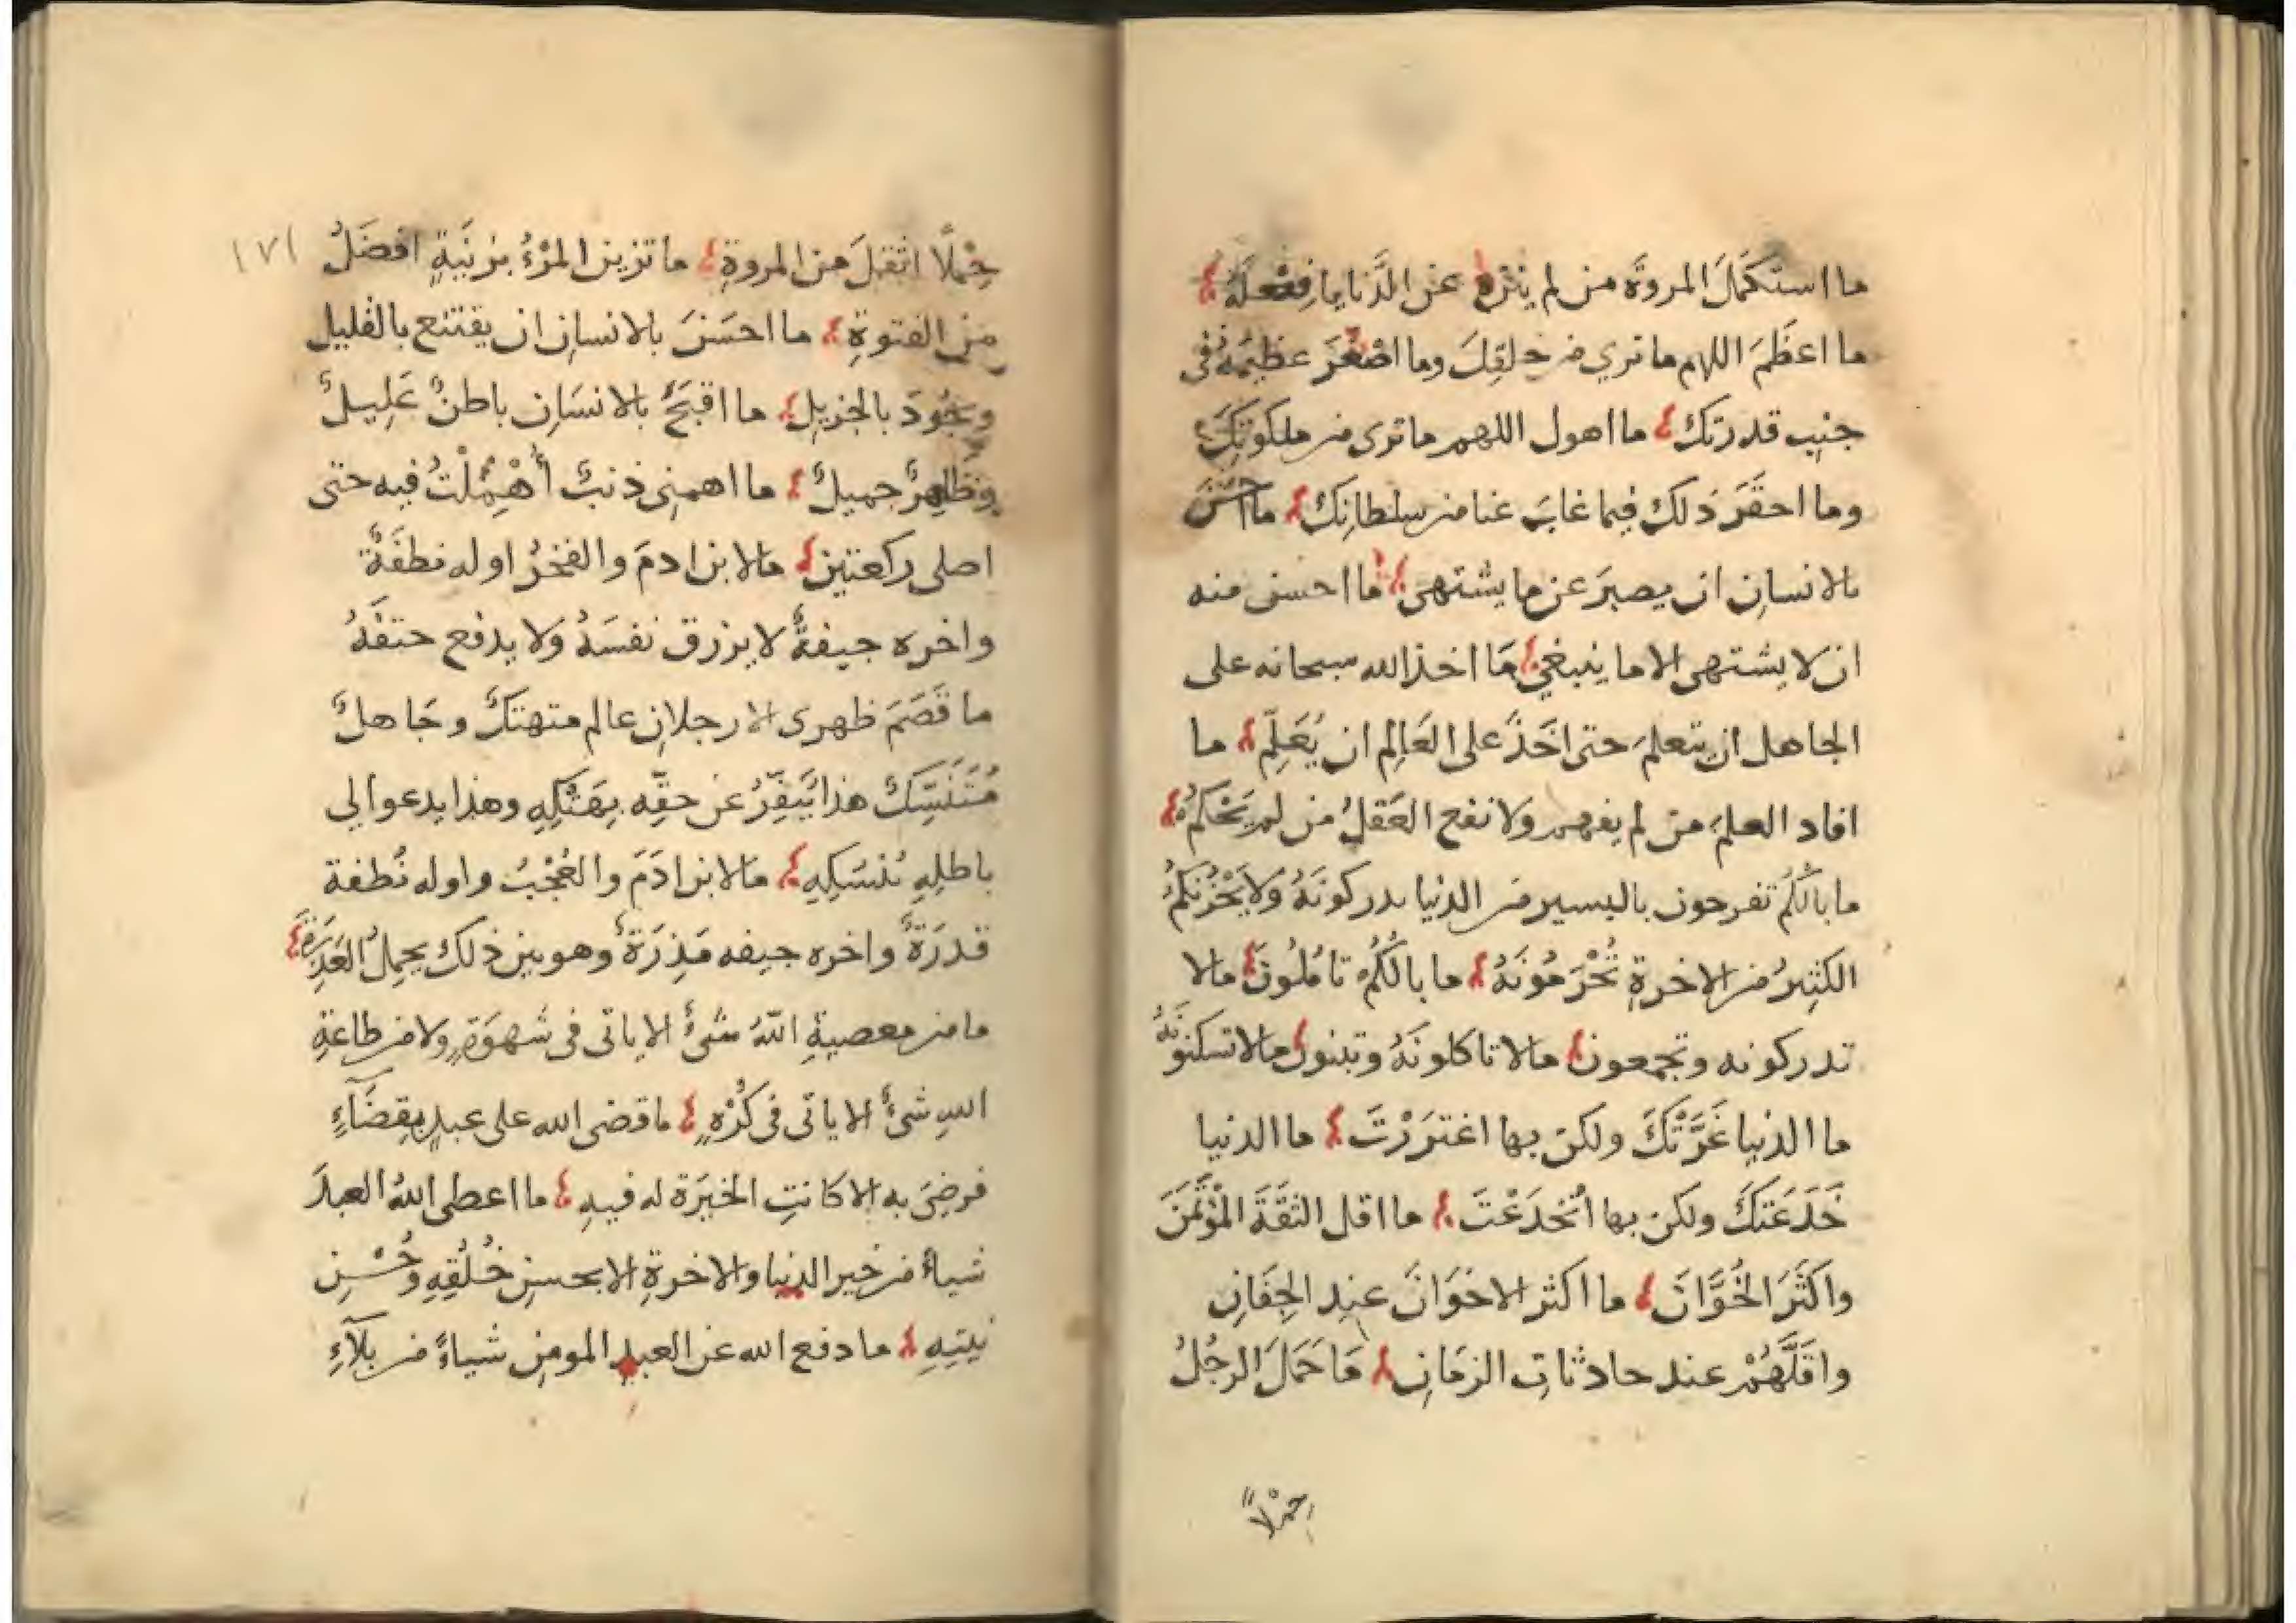 ما استكمَلَ المروةَ من لم ينزه عن الدَّنايا فعلَهُ
ما اعظَمَ اللهم ما نري من خلقِكَ وما اصْغَرَ عظيمَهُ في
جنبِ قدرتك ما اهول اللهم ما نرى من ملكوتِكَ
وما احقَرَ ذلك فيما غابَ عنا من سلطانِكَ ما احسَنَ
بالانسانِ ان يصبرَ عن ما يشتهى ما احسن منه
ان لا يشتهى الا ما ينبغي مَا اخذ الله سبحانه على
الجاهل ان يتعلمَ حتى اخَذَ على العَالِم ان يُعَلِّم ما
افاد العلمَ من لم يفهم ولا نفع العَقلُ من لم يَحْكمُ
ما بالُكُم تفرحون باليسير من الدنيا تدركونَهُ وَلا يَحْزُنكُمُ
الكثِيرُ من الاخرةِ تُحْرَمُونَهُ ما بالُكُمْ تامُلُونَ مالا
تدركونه وتجمعون مالا تاكلونَهُ وتبنون مالا تسكنونَهُ
ما الدنيا غَرَّتْكَ ولكن بها اغتَرَرْتَ ما الدنيا
خَدَعَتكَ ولكن بها اُنخدَعْتَ ما اقل الثقَةَ المُؤتَمَنَ
واكثَرَ الخُوَّانَ ما اكثر الاخوَانَ عندِ الجِفَانِ
واقلَّهُمْ عند حادثاتِ الزمَانِ مَا حَمَلَ الرجُلُ
حِمْلاً
١٧١
حِمْلًا اثقلَ من المروةِ ما تزين المرْءُ بزِينَةٍ افضَلُ
من الفتوةِ ما احسَنَ بالانسانِ ان يقتنع بالقليل
ويَجُودَ بالجزيلِ ما اقبَحَ بالانسَانِ باطنٌ عَلِيلٌ
وظَاهِرٌ جميلٌ ما اهمنِى ذنبٌ أُهْمِلْتُ فيه حتى
اصلى ركعتين مالابن ادمَ والفخرُ اوله نطفَةٌ
واخره جيفةٌ لا يرزق نفسَهُ وَلا يدفع حتفَهُ
ما قَصَمَ ظهرى الا رجلانِ عالم متهتكٌ وجَاهلٌ
مُتَنَسِّكٌ هذا يُنَفِّرُ عن حقِّه بِهَتْكِهِ وهذا يدعوا لي
باطلِهِ بُنسُكِهِ مَالابن ادَمَ والعُجْبُ واوله نُطفة
قذرَةٌ واخره جيفه مَذِرَةٌ وهو بين ذلك يحمِلُ العَذِرَةَ
ما من معصيةِ اللّهُ شيءٌ الا ياتى في شهوَةٍ ولا من طاعةِ
اللهِ شىءٌ الا ياتى في كُرْهٍ ما قضى الله على عبدٍ بقضَآءٍ
فرضِىَ به الا كانتِ الخيَرَة له فيهِ ما اعطى اللهُ العبدَ
شياءً من خير الدنيا والاخرةِ الا بحسنِ خُلُقِهِ وحُسْنِ
نيتِهِ ما دفع الله عن العبدِ المومِن شياءً من بلآءِ